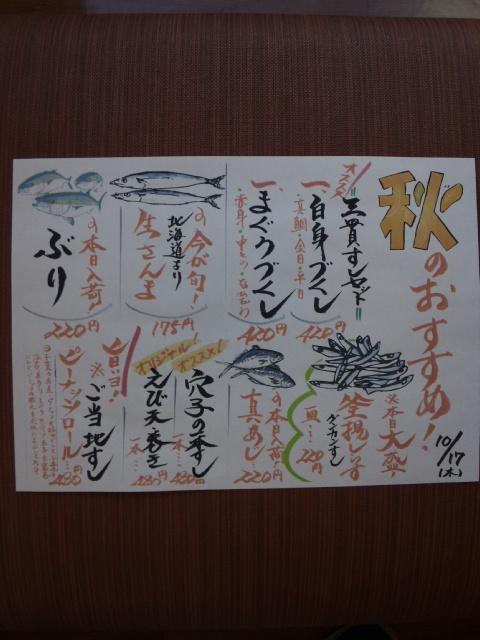 秋のおすすめ!
10/17
(木)
オススメ!!
三貫すしセット!!
一、白身づくし
真鯛・金目・平目
420円
一、まぐろづくし
420円
今が旬!
北海道より
生さんま
175円
本日入荷!
ぶり
220円
※本日大盛!
釜揚しらす
グンカンすし
一貫…
220円
本日入荷!
真あじ…
220円
オリジナル!
オススメ!
穴子の香すし
一本…
480円
えび天巻き
一本…
旨いヨ!
※ご当地すし
ピーナッツロール…
480円